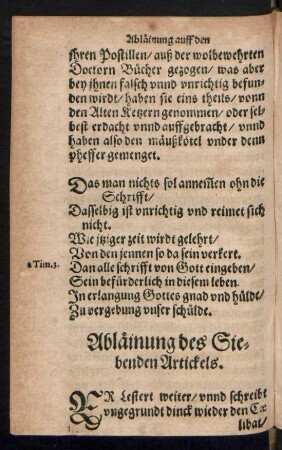 Abläinung auff den
jhren Postillen/ auß der wolbewehrten
Doctorn Bücher gezogen/ was aber
bey jhnen falsch vnnd vnrichtig befun-
den wirdt/ haben sie eins theils/ vonn
den Alten Ketzern genommen/ oder sel-
best erdacht vnnd auffgebracht/ vnnd
haben also den mäußkötel vnder denn
pheffer gemenget.
Das man nichts sol annem̃en ohn die
Schrifft/
Dasselbig ist vnrichtig vnd reimet sich
nicht.
Wie jtziger zeit wirdt gelehrt/
Von den jennen so da sein verkert.
2 Tim. 3.
Dan alle schrifft von Gott eingeben/
Sein befürderlich in diesem leben.
In erlangung Gottes gnad vnd hüldt/
Zu vergebung vnser schülde.
Abläinung des Sie-
benden Artickels.
ER Lestert weiter/ vnnd schreibt
vngegrundt dinck wieder den Cæ
libat/